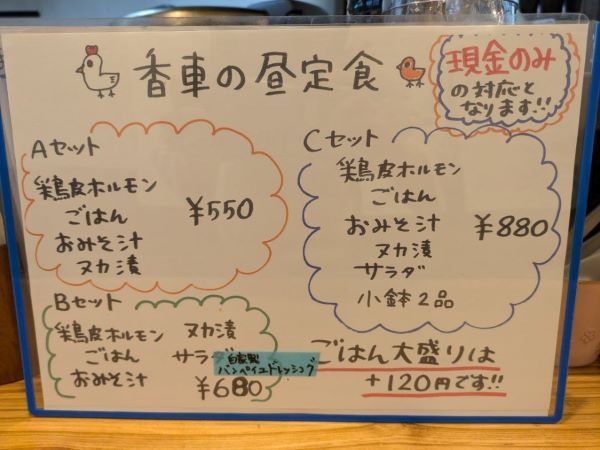 香車の昼定食
現金のみ
の対応と
なります!!
Aセット
鶏皮ホルモン
ごはん
おみそ汁
ヌカ漬
¥550
Bセット
鶏皮ホルモン
ごはん
おみそ汁
ヌカ漬
サラダ
自家製
バンペイユドレッシング
¥680
Cセット
鶏皮ホルモン
ごはん
おみそ汁
ヌカ漬
サラダ
小鉢2品
¥880
ごはん大盛りは
+120円です!!